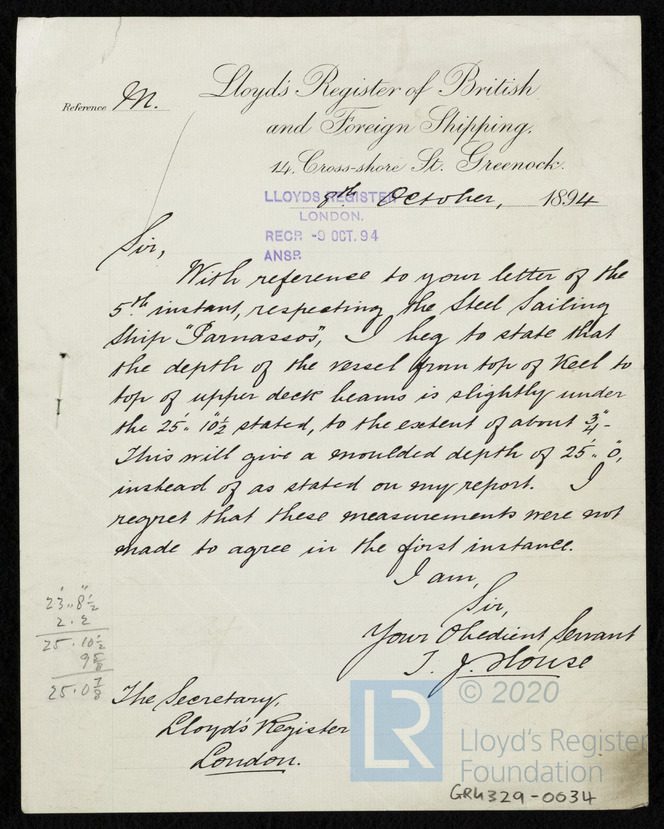 Reference M.
Lloyd's Register of British
and Foreign Shipping.
14. Cross-shore St. Greenock.
8th October, 1894
LLOYDS REGISTER
LONDON.
RECR -9 OCT. 94
ANSR
Sir,
With reference to your letter of the
5th instant, respecting the Steel Sailing
Ship "Parnassos", I beg to state that
the depth of the vessel from top of Keel to
top of upper deck beams is slightly under
the 25'.. 10½" stated, to the extent of about ¾" -
This will give a moulded depth of 25'.. 0",
instead of as stated on my report. I
regret that these measurements were not
made to agree in the first instance.
I am,
Sir,
Your Obedient Servant
T. J. House
23'..8½"
2.2
25.10½
9⅝
25.0⅞
The Secretary,
Lloyd's Register
London.
LR
© 2020
Lloyd's Register
Foundation
GRK329-0034